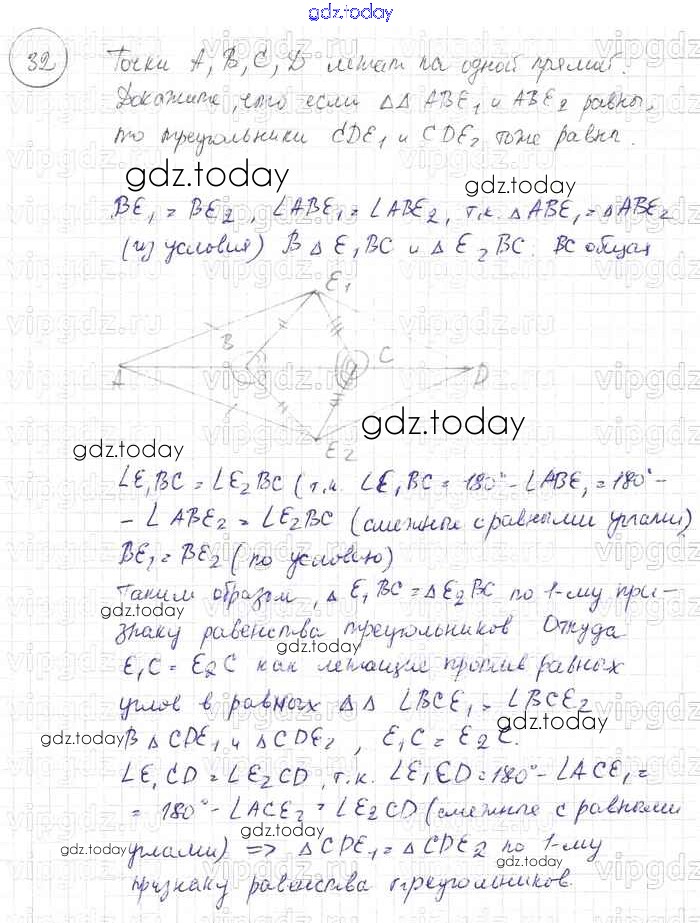 gdz.today
32
Точки A, B, C, D лежат на одной прямой.
Докажите, что если ΔΔ ABE₁ и ABE₂ равны,
то треугольники CDE₁ и CDE₂ тоже равны.
gdz.today
gdz.today
BE₁ = BE₂, ∠ABE₁ = ∠ABE₂, т.к. ΔABE₁ = ΔABE₂
(из условия) В Δ E₁BC и Δ E₂BC. BC общая
E₁
B
C
A
D
E₂
gdz.today
gdz.today
∠E₁BC = ∠E₂BC (т.к. ∠E₁BC = 180° - ∠ABE₁ = 180° -
- ∠ABE₂ = ∠E₂BC (смежные с равными углами),
BE₁ = BE₂ (по условию)
Таким образом, Δ E₁BC = Δ E₂BC по 1-му при-
gdz.today
знаку равенства треугольников Откуда
E₁C = E₂C как лежащие против равных
углов в равных ΔΔ ∠BCE₁ = ∠BCE₂
gdz.today
gdz.today
В ΔCDE₁ и ΔCDE₂, E₁C = E₂C.
∠E₁CD = ∠E₂CD, т.к. ∠E₁CD = 180° - ∠ACE₁ =
= 180° - ∠ACE₂ = ∠E₂CD (смежные с равными
gdz.today
gdz.today
углами) => ΔCDE₁ = ΔCDE₂ по 1-му
признаку равенства треугольников.
gdz.today